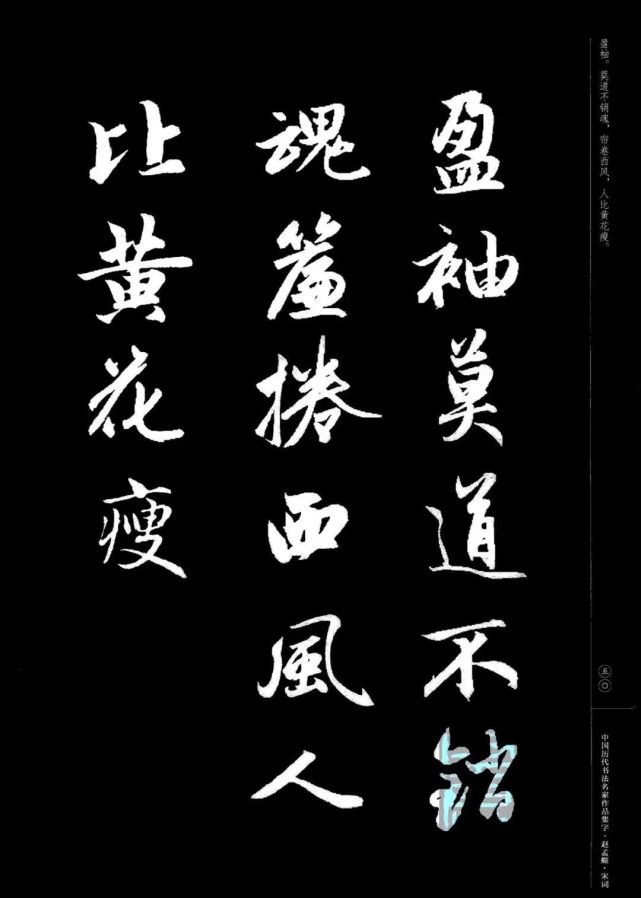 盈袖。莫道不销魂，帘卷西风，人比黄花瘦。
五〇
中国历代书法名家作品集字·赵孟頫·宋词
盈袖莫道不銷
魂簾捲西風人
比黄花瘦